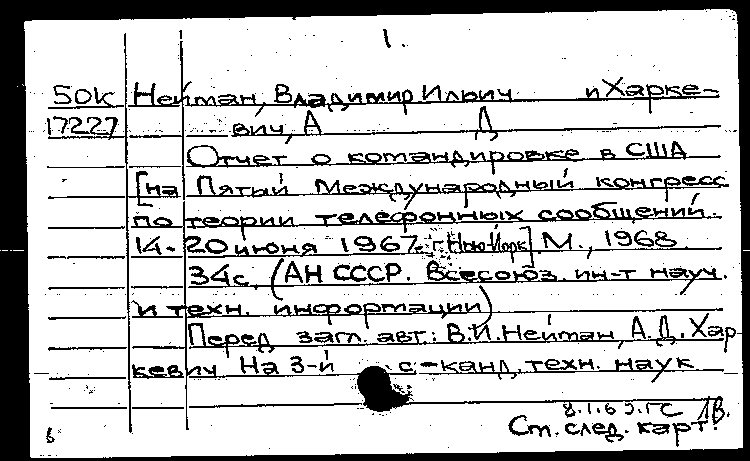 1.
50к Нейман, Владимир Ильич и Харке-
17227 вич, А Д
Отчет о командировке в США
[на Пятый Международный конгресс
по теории телефонных сообщений.
14-20 июня 1967. г. Нью-Йорк]. М., 1968.
34с. (АН СССР. Всесоюз. ин-т науч.
и техн. информации)
Перед загл. авт.: В.И. Нейман, А.Д. Хар
кевич На 3-й с-канд. техн. наук
ЛВ.
См. след. карт.
6